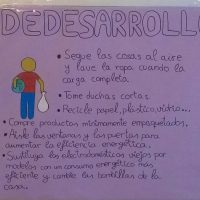 DEDESARROLLO
• Seque las cosas al aire
y lave la ropa cuando la
carga completa.
• Tome duchas cortas.
• Recicle papel, plástico, vidrio...
• Compre productos mínimamente empaquetados.
• Aisle las ventanas y las puertas para
aumentar la eficiencia energética.
• Sustituya los electrodomésticos viejos por
modelos con un consumo energético más
eficiente y cambie las bombillas de la
casa.